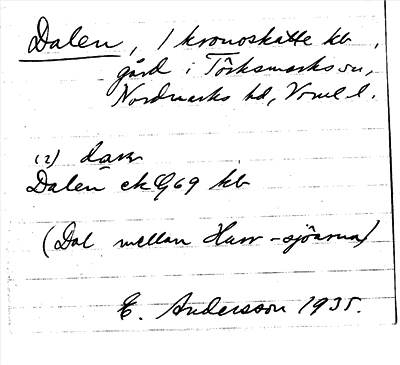 Dalen, 1 kronoskatte kb
gård i Törksmarks sn,
Nordmarks hd, Vrml l.
(2) dan
Dalen ek G69 kb
(Dal mellan Harr-sjöarna)
E. Andersson 1935.